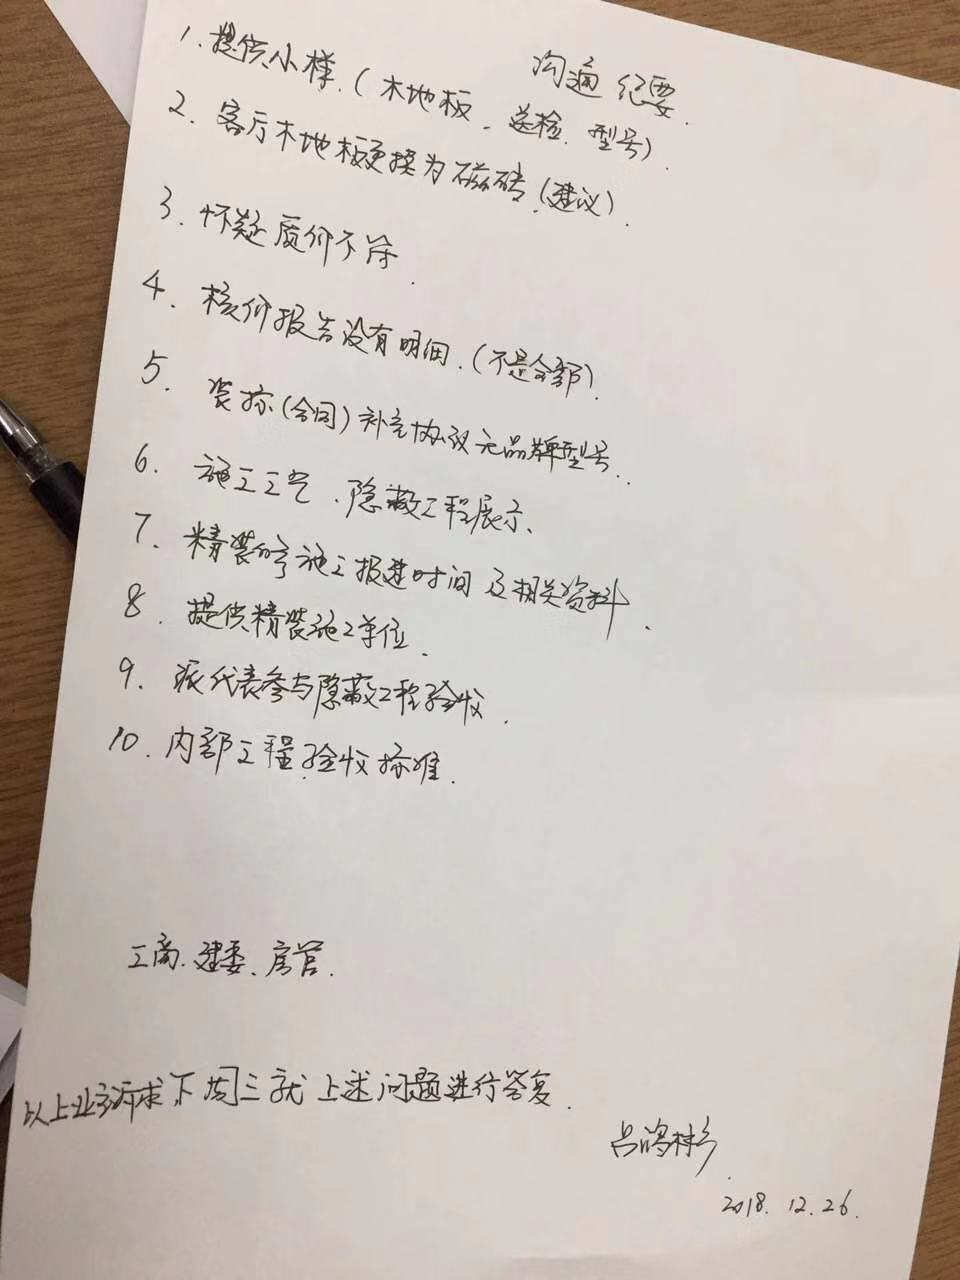 沟通纪要.
1.提供小样.(木地板、送检.型号).
2.客厅木地板更换为磁砖.(建议).
3.怀疑质价不符.
4.核价报告没有明细.(不是全部).
5.装标(合同)补充协议无品牌型号.
6.施工工艺、隐蔽工程展示、
7.精装修施工报建时间及相关资料.
8 提供精装施工单位.
9.派代表参与隐蔽工程验收.
10.内部工程验收标准.
工商.建委、房管.
以上业主诉求下周三就上述问题进行答复.
2018.12.26.